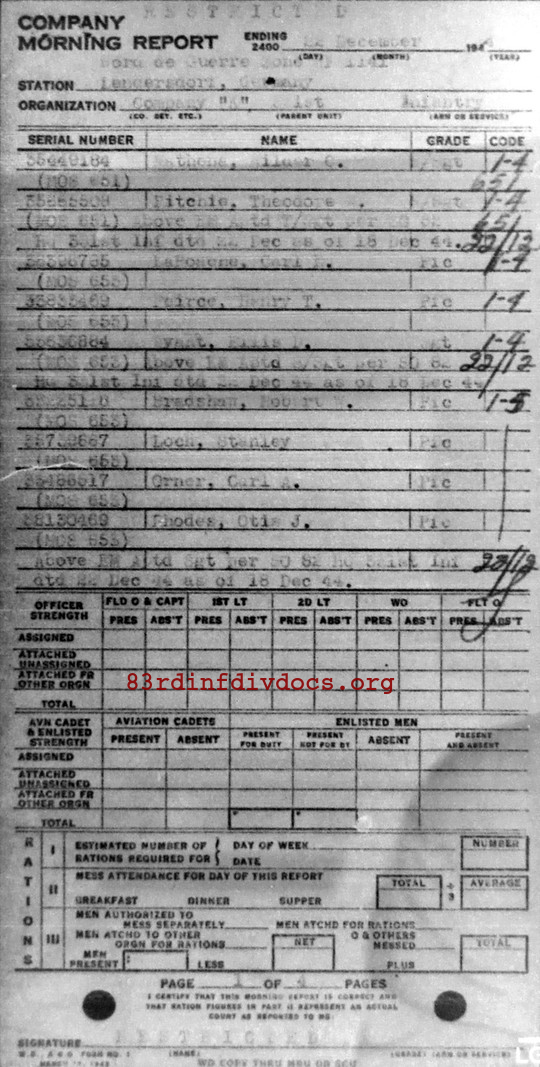 RESTRICT D
COMPANY
MORNING REPORT ENDING 2400 22 December 194
(DAY) (MONTH) (YEAR)
STATION Lendersdorf, Germany
ORGANIZATION Company "K", Infantry
(CO. DET. ETC.) (PARENT UNIT) (ARM OR SERVICE)
SERIAL NUMBER NAME GRADE CODE
35449184 1-4
(MOS 651) 651
Fitchie, Theodore 1-4
(MOS 651) Above EM Aptd T/Sgt per SO 82 651
Hq 331st Inf dtd 22 Dec as of 18 Dec 44. 22/12
Carl Pfc 1-4
(MOS 653)
Peirce, Henry T. Pfc 1-4
(MOS 653)
Ellis Sgt 1-4
(MOS 653) Above EM Aptd S/Sgt per SO 82 22/12
Hq 331st Inf dtd 22 Dec 44 as of 18 Dec 44
Bradshaw, Robert W. Pfc 1-5
(MOS 653)
Loch, Stanley Pfc
(MOS 653)
35486517 Orner, Carl A. Pfc
(MOS 653)
38130469 Rhodes, Otis J. Pfc
(MOS 653)
Above EM Aptd Sgt per SO 82 Hq 331st Inf 22/12
dtd 22 Dec 44 as of 18 Dec 44.
OFFICER STRENGTH FLD O & CAPT 1ST LT 2D LT WO FLT O
PRES ABS'T PRES ABS'T PRES ABS'T PRES ABS'T PRES ABS'T
ASSIGNED
ATTACHED UNASSIGNED
ATTACHED FR OTHER ORGN
83rdinfdivdocs.org
TOTAL
AVN CADET & ENLISTED STRENGTH AVIATION CADETS ENLISTED MEN
PRESENT ABSENT PRESENT FOR DUTY PRESENT NOT FOR DY ABSENT PRESENT AND ABSENT
ASSIGNED
ATTACHED UNASSIGNED
ATTACHED FR OTHER ORGN
TOTAL
RATIONS
I ESTIMATED NUMBER OF RATIONS REQUIRED FOR DAY OF WEEK DATE NUMBER
II MESS ATTENDANCE FOR DAY OF THIS REPORT TOTAL ÷ 3 AVERAGE
BREAKFAST DINNER SUPPER
III MEN AUTHORIZED TO MESS SEPARATELY MEN ATCHD FOR RATIONS
MEN ATCHD TO OTHER ORGN FOR RATIONS NET O & OTHERS MESSED TOTAL
MEN PRESENT LESS PLUS
PAGE 1 OF 4 PAGES
I CERTIFY THAT THIS MORNING REPORT IS CORRECT AND
THAT RATION FIGURES IN PART III REPRESENT AN ACTUAL
COUNT AS REPORTED TO ME.
RESTRICTED
SIGNATURE
W.D., A G O FORM NO. 1 (NAME) (GRADE) (ARM OR SERVICE)
WD COPY THRU MRU OR SCU